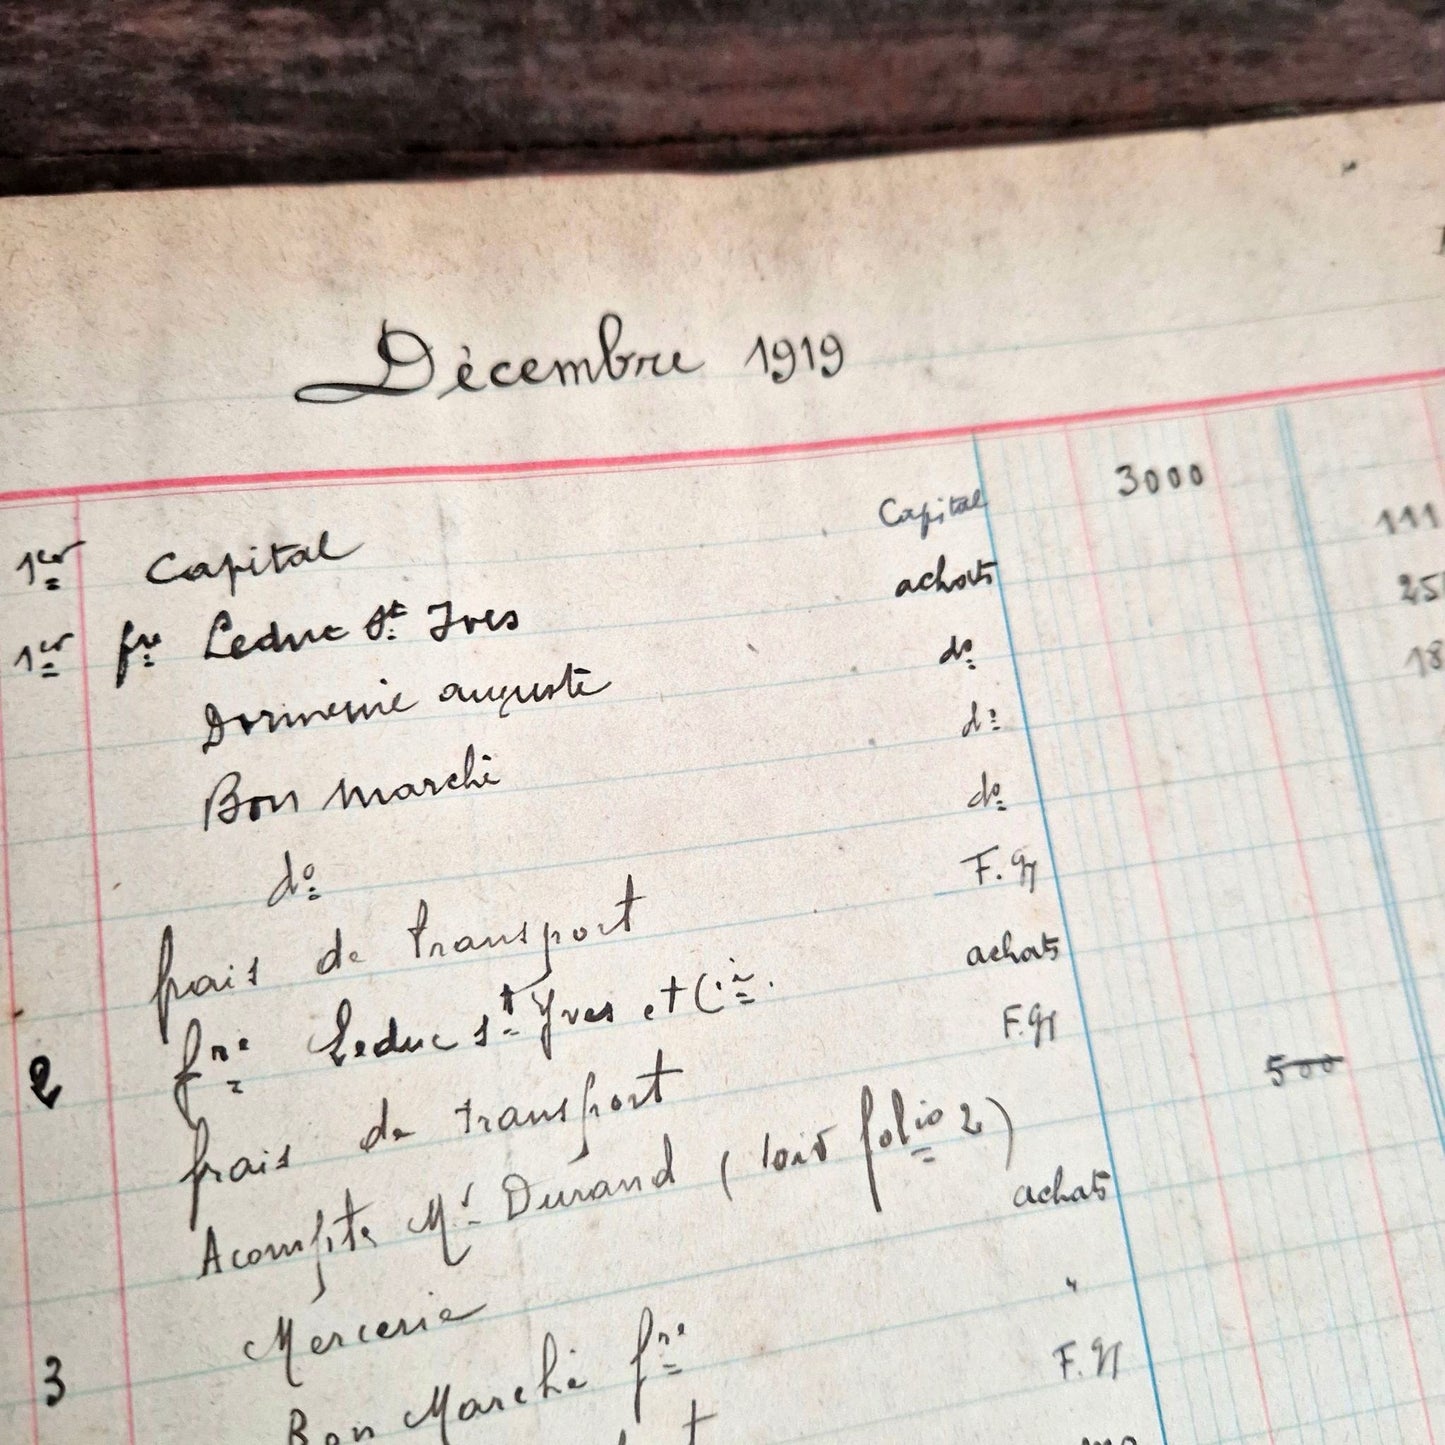 Décembre 1919
1er Capital Capital 3000
1er fre Leduc St Yves achats 111
auguste do 25
Bon Marché do 18
do do
frais de transport F. gx
2 fre Leduc St Yves et Cie. achats
frais de transport F. gx
Acompte Mr Durand (voir folio 2) 500
Mercerie achats
3 Bon Marché fre "
F. gx